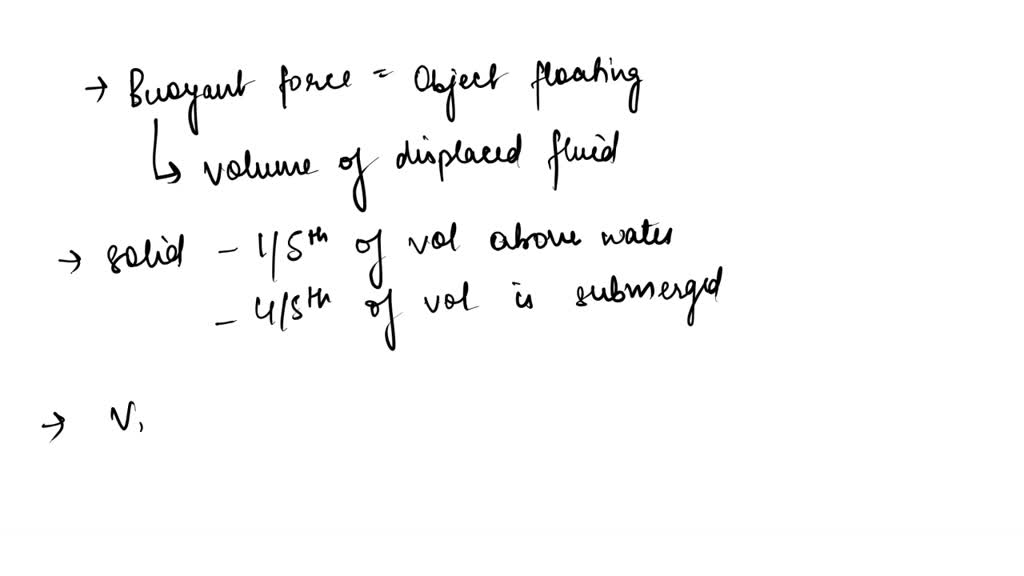 → Buoyant force = Object floating
↳ volume of displaced fluid
→ solid - 1/5th of vol above water
- 4/5th of vol is submerged
→ V,